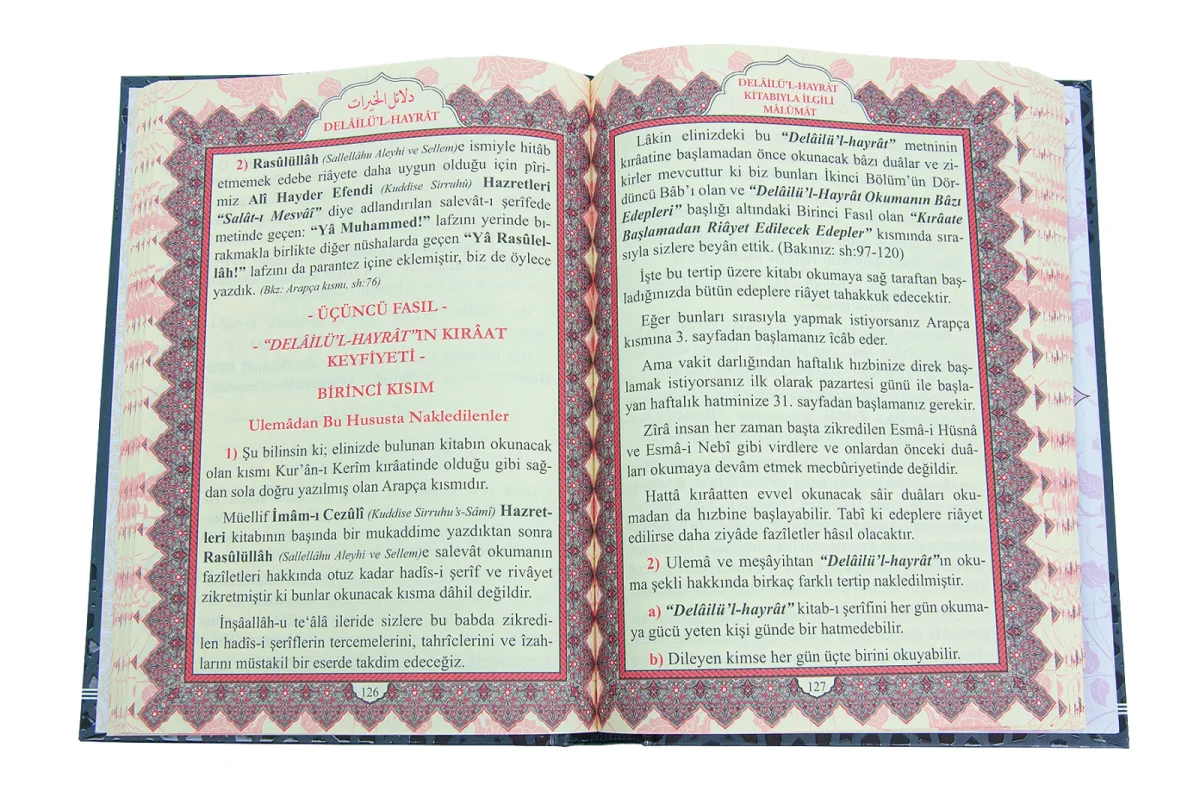 دلائل الخيرات
DELÂİLÜ’L-HAYRÂT
2) Rasûlüllâh (Sallellâhu Aleyhi ve Sellem)e ismiyle hitâb
etmemek edebe riâyete daha uygun olduğu için pîri-
miz Alî Hayder Efendi (Kuddise Sirruhû) Hazretleri
“Salât-ı Mesvâî” diye adlandırılan salevât-ı şerîfede
metinde geçen: “Yâ Muhammed!” lafzını yerinde bı-
rakmakla birlikte diğer nüshalarda geçen “Yâ Rasûlel-
lâh!” lafzını da parantez içine eklemiştir, biz de öylece
yazdık. (Bkz: Arapça kısmı, sh:76)
- ÜÇÜNCÜ FASIL -
- “DELÂİLÜ’L-HAYRÂT”IN KIRÂAT
KEYFİYETİ -
BİRİNCİ KISIM
Ulemâdan Bu Hususta Nakledilenler
1) Şu bilinsin ki; elinizde bulunan kitabın okunacak
olan kısmı Kur’ân-ı Kerîm kırâatinde olduğu gibi sağ-
dan sola doğru yazılmış olan Arapça kısmıdır.
Müellif İmâm-ı Cezûlî (Kuddise Sirruhu’s-Sâmî) Hazret-
leri kitabının başında bir mukaddime yazdıktan sonra
Rasûlüllâh (Sallellâhu Aleyhi ve Sellem)e salevât okumanın
fazîletleri hakkında otuz kadar hadîs-i şerîf ve rivâyet
zikretmiştir ki bunlar okunacak kısma dâhil değildir.
İnşâallâh-u te‘âlâ ileride sizlere bu babda zikredi-
len hadîs-i şerîflerin tercemelerini, tahrîclerini ve îzah-
larını müstakil bir eserde takdim edeceğiz.
126
DELÂİLÜ’L-HAYRÂT
KİTABIYLA İLGİLİ
MÂLÛMÂT
Lâkin elinizdeki bu “Delâilü’l-hayrât” metninin
kırâatine başlamadan önce okunacak bâzı duâlar ve zi-
kirler mevcuttur ki biz bunları İkinci Bölüm’ün Dör-
düncü Bâb’ı olan ve “Delâilü’l-Hayrât Okumanın Bâzı
Edepleri” başlığı altındaki Birinci Fasıl olan “Kırâate
Başlamadan Riâyet Edilecek Edepler” kısmında sıra-
sıyla sizlere beyân ettik. (Bakınız: sh:97-120)
İşte bu tertip üzere kitabı okumaya sağ taraftan baş-
ladığınızda bütün edeplere riâyet tahakkuk edecektir.
Eğer bunları sırasıyla yapmak istiyorsanız Arapça
kısmına 3. sayfadan başlamanız îcâb eder.
Ama vakit darlığından haftalık hızbinize direk baş-
lamak istiyorsanız ilk olarak pazartesi günü ile başla-
yan haftalık hatminize 31. sayfadan başlamanız gerekir.
Zîrâ insan her zaman başta zikredilen Esmâ-i Hüsnâ
ve Esmâ-i Nebî gibi virdlere ve onlardan önceki duâ-
ları okumaya devâm etmek mecbûriyetinde değildir.
Hattâ kırâatten evvel okunacak sâir duâları oku-
madan da hızbine başlayabilir. Tabî ki edeplere riâyet
edilirse daha ziyâde fazîletler hâsıl olacaktır.
2) Ulemâ ve meşâyihtan “Delâilü’l-hayrât”ın oku-
ma şekli hakkında birkaç farklı tertip nakledilmiştir.
a) “Delâilü’l-hayrât” kitab-ı şerîfini her gün okuma-
ya gücü yeten kişi günde bir hatmedebilir.
b) Dileyen kimse her gün üçte birini okuyabilir.
127